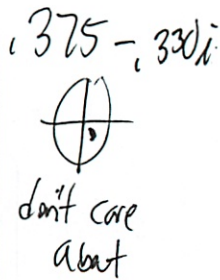 .375 - .330i
don't care
about